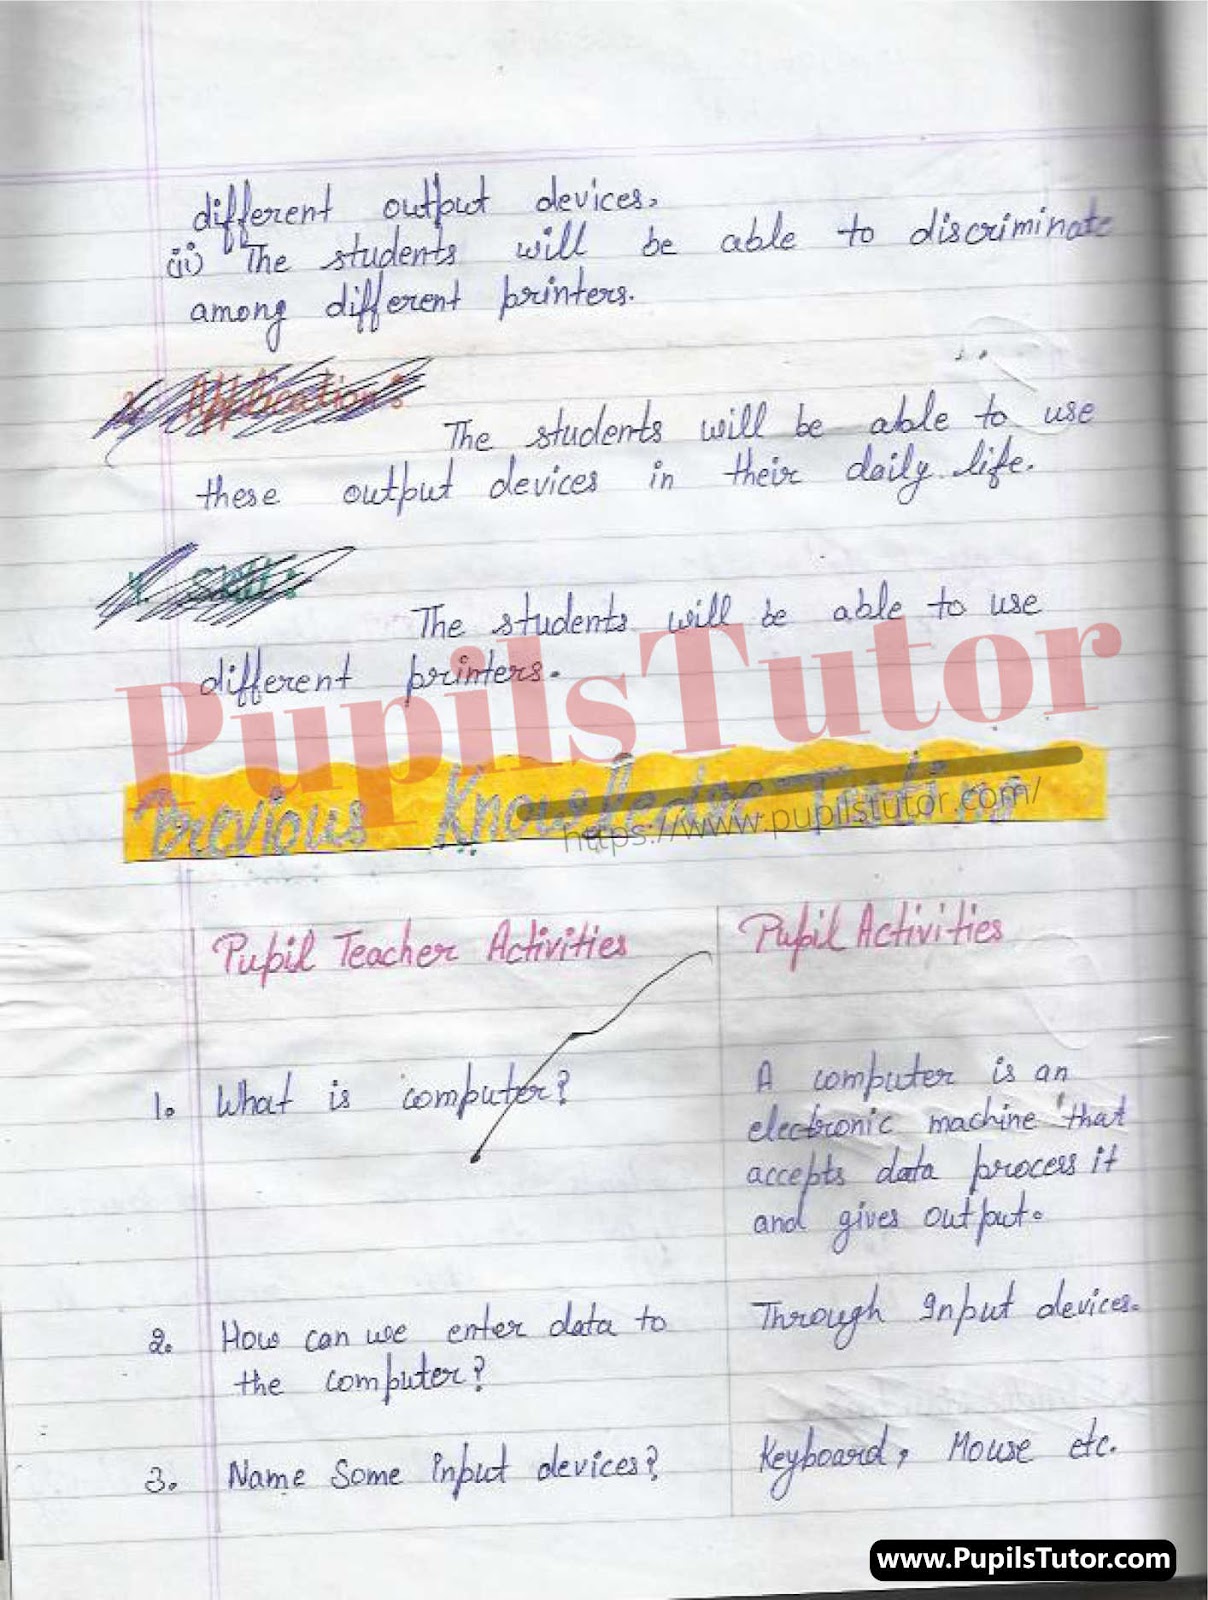 different output devices.
(ii) The students will be able to discriminate
among different printers.
3. Application :
The students will be able to use
these output devices in their daily life.
4. Skill :
The students will be able to use
different printers.
PupilsTutor
Previous Knowledge Testing
https://www.pupilstutor.com/
Pupil Teacher Activities
Pupil Activities
1. What is computer?
A computer is an
electronic machine that
accepts data process it
and gives output.
2. How can we enter data to
the computer?
Through Input devices.
3. Name Some input devices?
Keyboard, Mouse etc.
www.PupilsTutor.com